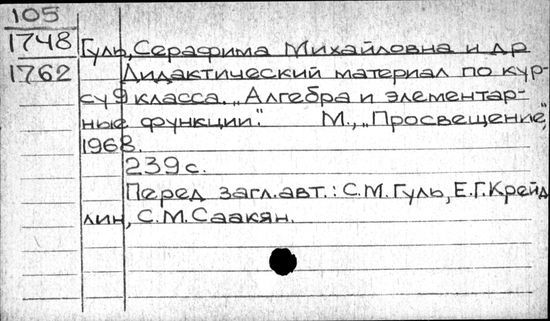 105
1748 Гуль, Серафима Михайловна и др
1762 Дидактический материал по кур-
су 9 класса „Алгебра и элементар-
ные функции". М., „Просвещение",
1968.
239 с.
Перед загл. авт.: С.М. Гуль, Е.Г. Крейд
лин, С.М. Саакян.